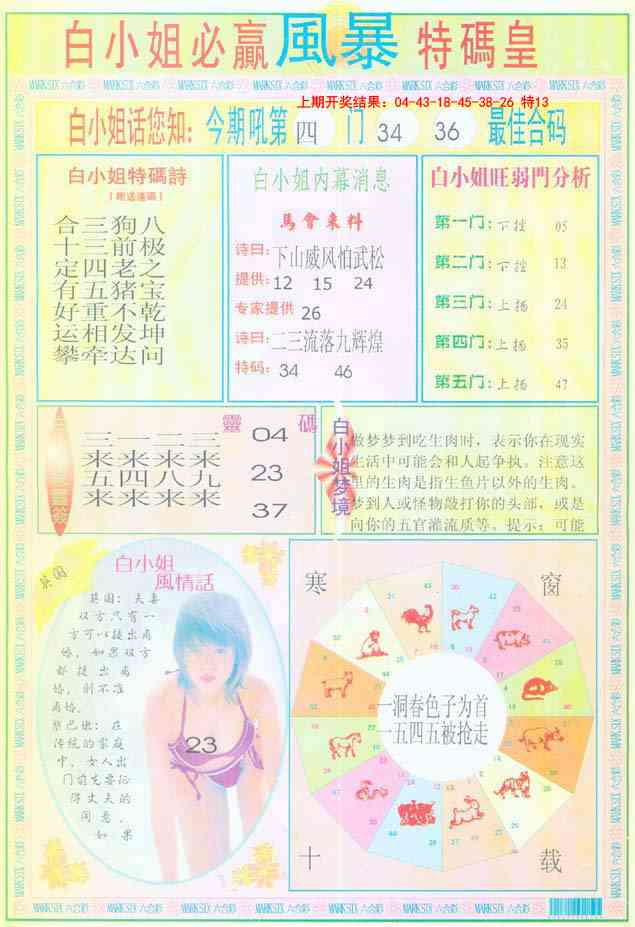 白小姐必贏風暴特碼皇
MARKSIX 六合彩
上期开奖结果：04-43-18-45-38-26 特13
白小姐话您知：今期吼第四门 34 36 最佳合码
白小姐特碼詩
合三狗八
十三前极
定四老之
有五猪宝
好重不乾
运相发坤
攀牵达问
白小姐内幕消息
馬會来料
诗曰：下山威风怕武松
提供：12 15 24
专家提供 26
诗曰：二三流落九辉煌
特码：34 46
白小姐旺弱門分析
第一门：下挫 05
第二门：下挫 13
第三门：上扬 24
第四门：上扬 35
第五门：上扬 47
靈碼
三一二三
来来来来
五四八九
来来来来
04
23
37
白小姐梦境
做梦梦到吃生肉时，表示你在现实
生活中可能会和人起争执。注意这
里的生肉是指生鱼片以外的生肉。
梦到人或怪物敲打你的头部，或是
向你的五官灌流质等。提示：可能
英国
白小姐
風情話
英国：夫妻
双方只有一
方可以提出离
婚，如果双方
都提出离
婚，则不准
离婚。
黎巴嫩：在
传统的家庭
中，女人出
门前先要征
得丈夫的
同意，
如果
23
寒
窗
一洞春色子为首
一五四五被抢走
十
载
MARKSIX 六合彩